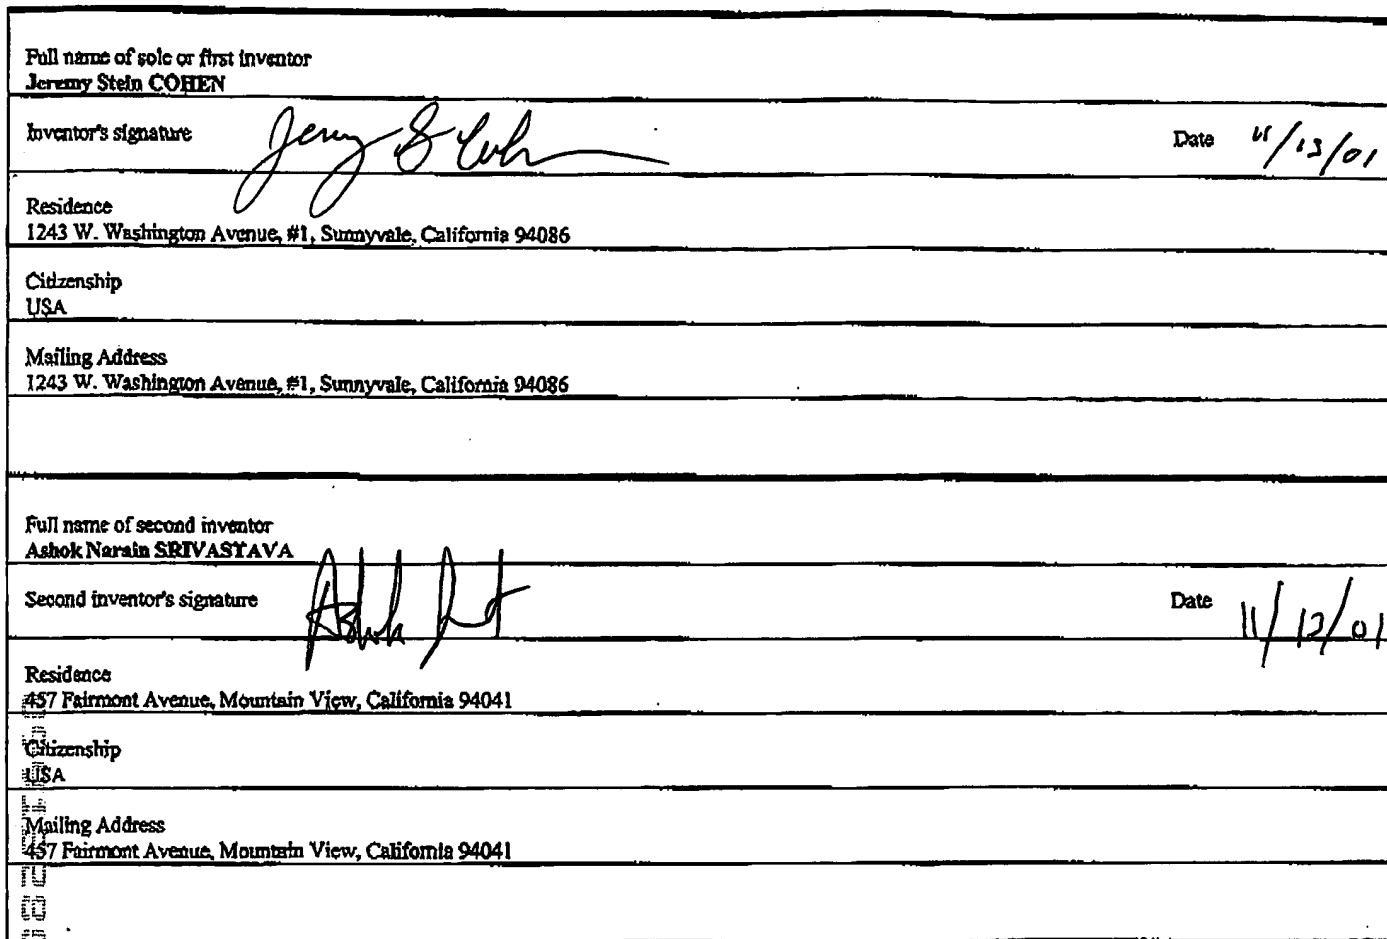 Full name of sole or first inventor
Jeremy Stein COHEN
Inventor's signature Jeremy S Cohen Date 11/13/01
Residence
1243 W. Washington Avenue, #1, Sunnyvale, California 94086
Citizenship
USA
Mailing Address
1243 W. Washington Avenue, #1, Sunnyvale, California 94086
Full name of second inventor
Ashok Narain SRIVASTAVA
Second inventor's signature Ashok Date 11/13/01
Residence
457 Fairmont Avenue, Mountain View, California 94041
Citizenship
USA
Mailing Address
457 Fairmont Avenue, Mountain View, California 94041